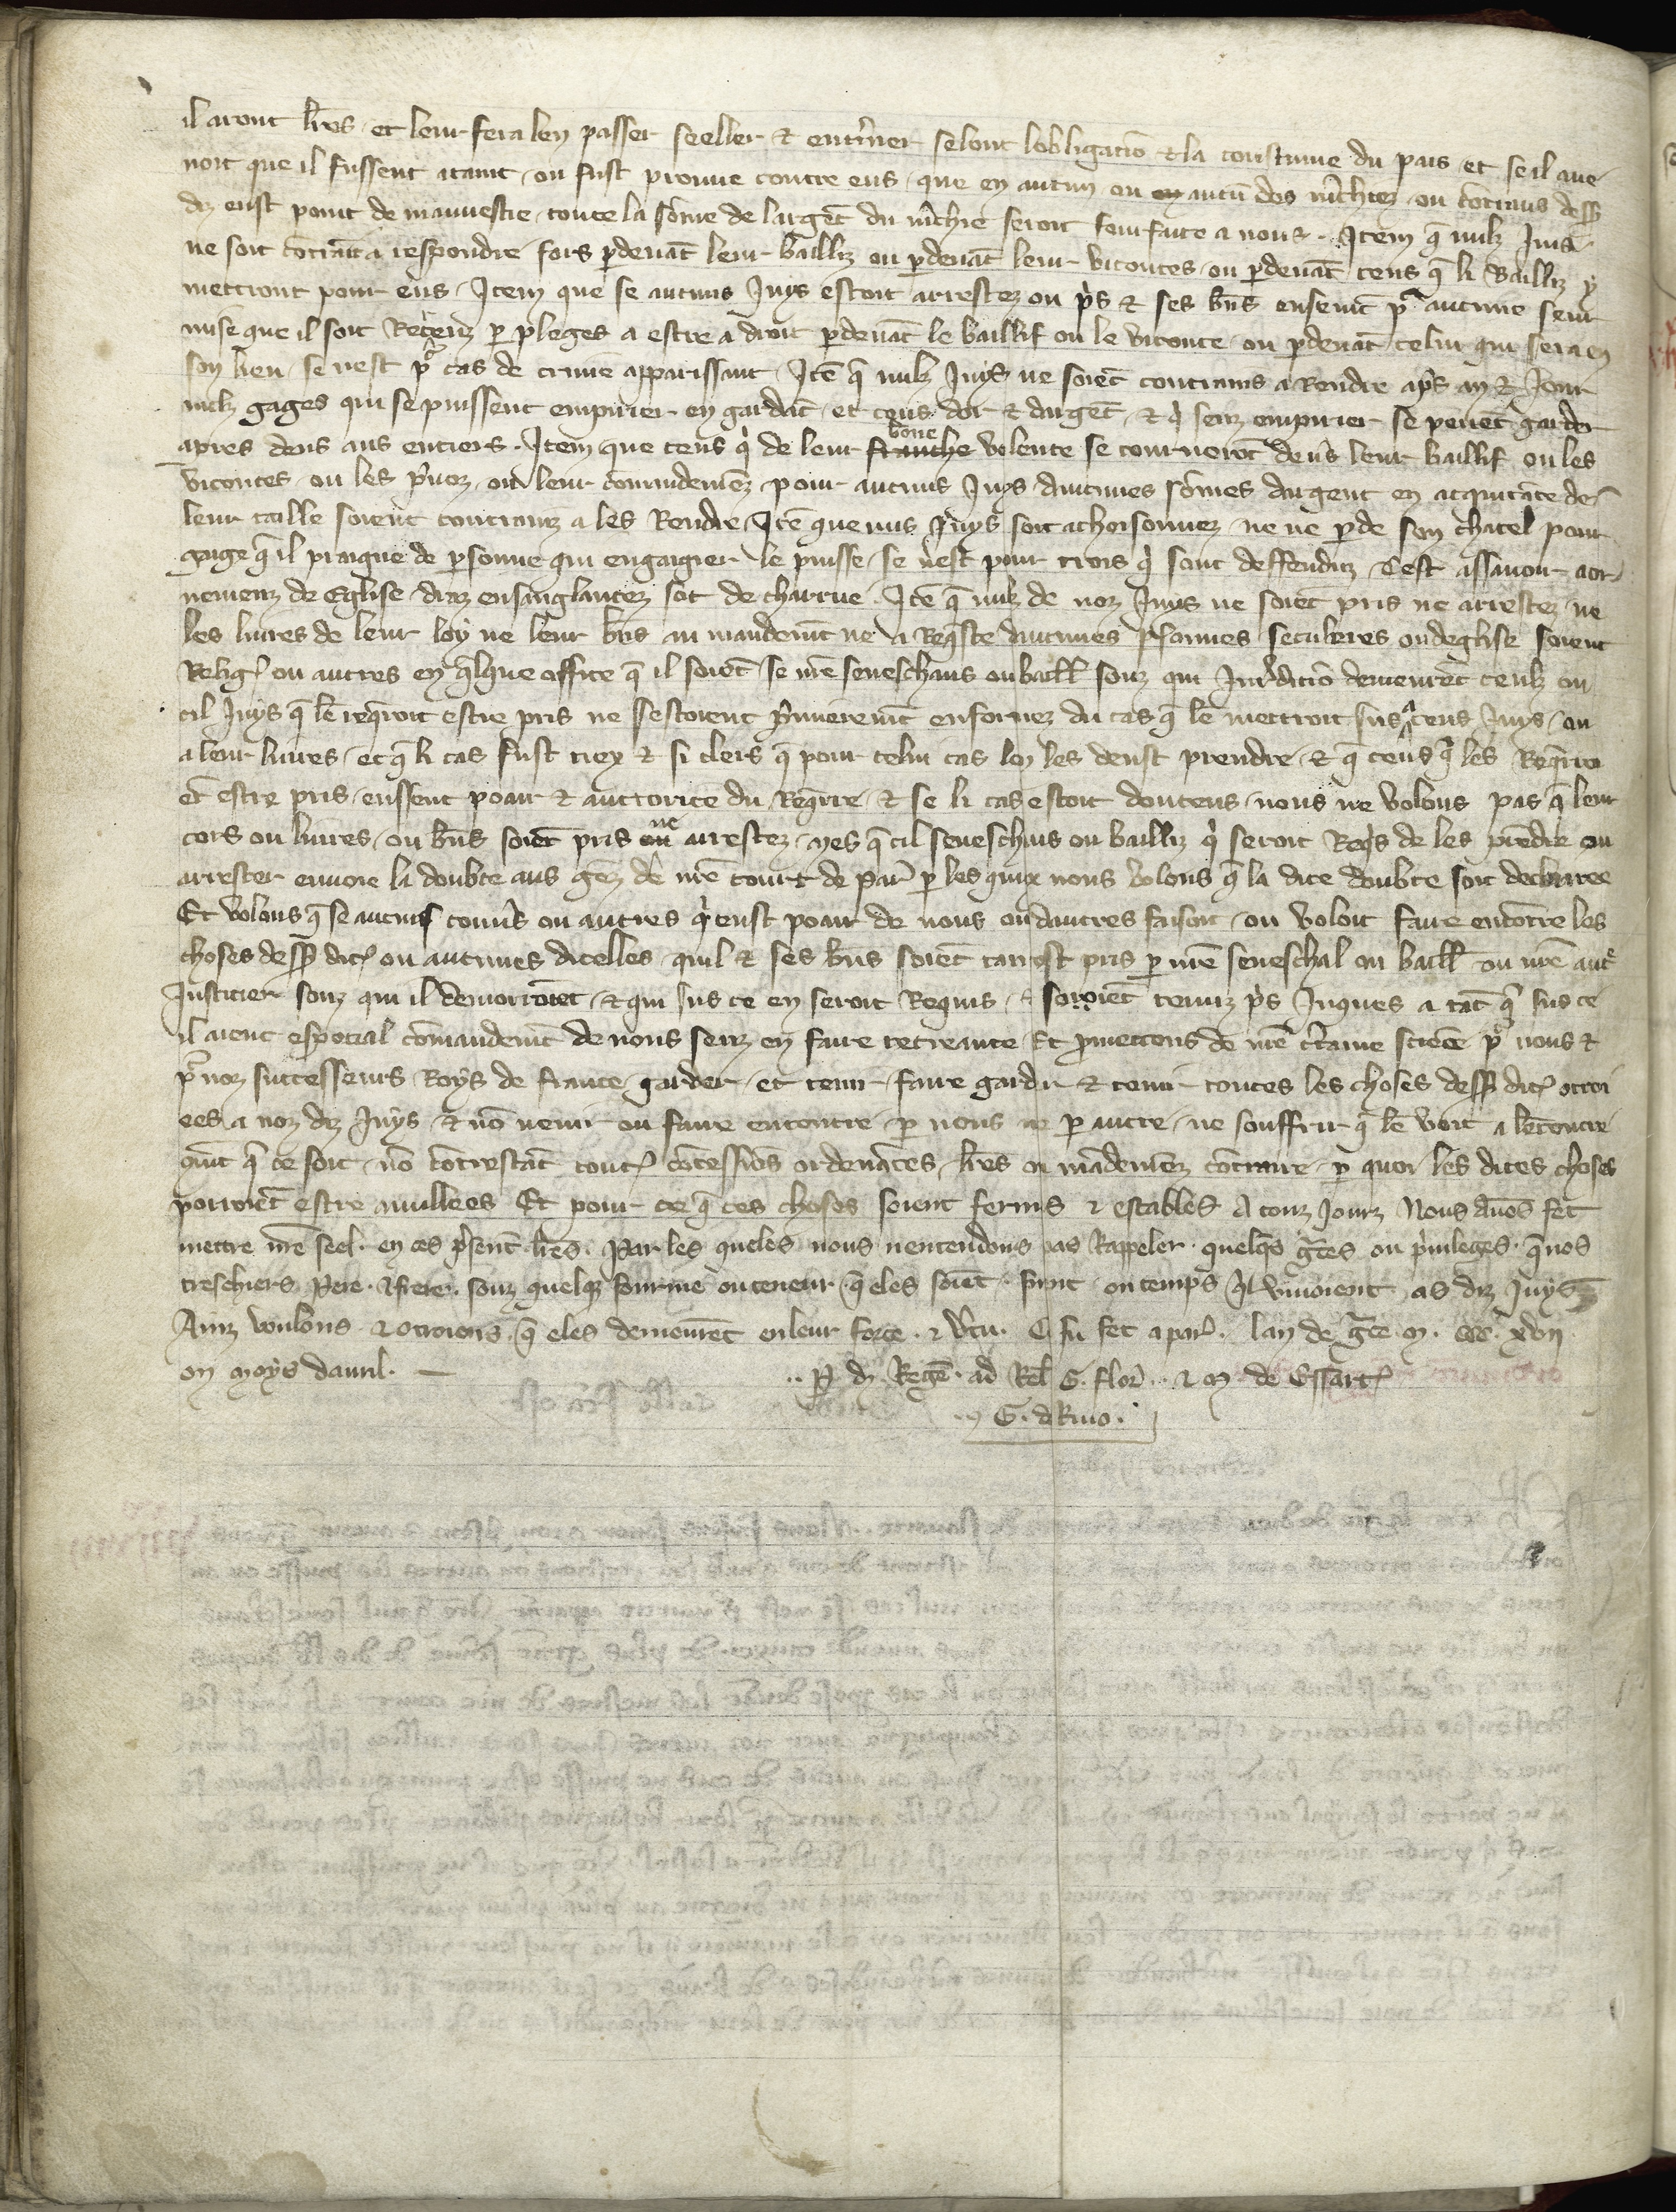 il aront lr̃es et leur fera len passer seeller & ent̾iner selont lobligacio᷑ & la coustume du pais et se il aue
noit que il fussent ataint ou fust prouue contre eus que en aucun ou en aucũ des m̾chiez ou cõtraus dess᷑
diz eust point de mauuestie toute la sõme de largẽt du m̾chie seroit fourfaite a nous. Item q̃ nulz Juis
ne soit cõtraĩt a respondre fors p̱deuãt leur bailliz ou p̱deuãt leur vicontes ou p̱deuãt ceus q̃ li Bailliz y
mettront pour eus. Item que se aucuns Juys estoit arrestez ou p̾s & ses bñs ensemẽt p̾ aucune seur
mise que il soit Receuz p̱ pleges a estre a droit p̱deuãt le baillif ou le viconte ou p̱deuãt celui qui sera en
son lieu se nest p̾ cas de crimẽ apparissant. Itẽ q̃ nulz Juys ne soiẽt contrains a Rendre ap̾s an & Jour
nulz gages qui se puissent empirier en gardãt et ceus dor & dargẽt & q̾ senz empirier se peuẽt garder
apres deus ans entiers. Item que ceus q̾ de leur franche bone volente se tournerõt deu̾s leur baillif ou les
vicontes ou les p̾uoz ou leur cõmandemẽz pour aucuns Juys daucunes sõmes dargent en acquitãce de
leur taille soient contrainz a les Rendre. Itẽ que nus Juys soit achoisonnez ne ne p̱de son chatel pour
gage q̃ il praigne de p̱sonne qui engaigier le puisse se nest pour trois q̾ sont deffenduz Cest assauoir aor
nemenz de Eglise draz ensanglantez sot de charrue. Itẽ q̃ nulz de noz Juys ne soiẽt pris ne arrestez ne
les liures de leur loy ne leur bñs au mandemẽt ne a Req̃ste daucunes p̱sonnes seculieres ou deglise soient
Religꝰ ou autres en q̃lque office q̃ il soiẽt se nr̃e seneschaus ou baill̃ souz qui Jur̾dicio᷑ demeurẽt ceulz ou
cil Juys q̃ lẽ req̃roit estre pris ne sestoient p̾mieremẽt enformez du cas q̃ lẽ mettroit sus a ceus Juys ou
a leur liures et q̃ li cas fust tiex & si clers q̃ pour celui cas lon les deust prendre & q̃ ceus q̾ les Req̾rro
ẽt estre pris eussent poair & auctorite du Req̾rre & se li cas estoit douteus nous ne volons pas q̃ leur
cors ou liures ou bñs soiẽt pris ou ne arrestez mes q̃ cil seneschaus ou bailliz q̾ seroit Req̾s de les prẽdre ou
arrester enuoie la doubte aus gẽz de nr̃e court de Par̾ p̱ les quiex nous volons q̃ la dite doubte soit declairee
Et volons q̃ se aucuns comis̃ ou autres q̾ eust poair de nous ou dautres faisoit ou voloit faire encõtre les
choses dess᷑ dictꝰ ou aucunes dicelles quil & ses bñs soiẽt tantost pris p̱ nr̃e seneschal ou baill̃ ou nr̃e aut̾
Justicier souz qui il demorroiẽt & qui sus ce en seroit Requis & soroiẽt tenuz p̾s Juques a tãt q̃ sus ce
il aient especial cõmandemẽt de nous senz en faire recreance Et p̱mettons de nr̃e c̾taine sciẽce p̾ nous &
p̾ noz successeurs Roys de france garder et tenir faire garder & tenir toutes les choses dess᷑ dictꝰ ottroi
ees a noz dz Juys & nõ venir ou faire encontre p̱ nous ne p̱ autre ne souffrir q̃ lẽ voit a lẽcontre
cõmẽt q̃ ce soit nõ cõtrestãt toutꝰ cõcessions ordenãces lr̃es ou mãdemẽz cõtraire p̱ quoi les dites choses
porroiẽt estre anullees Et pour ce q̃ ces choses soient fermes & estables A touz Jourz Nous auõs fet
mettre nr̃e seel. en ces p̾sent̃ lr̃es. Par les queles nous nentendons pas Rappeler. quelq̃s gr̃ces ou p̾uileges. q̃ nos
treschiers Pere. & frere. souz quelq̃ fourme ou teneur q̃ eles soiẽt. firent ou temps q̾l viuoient as diz Juys
Ainz voulons. & otroions. q̃ eles demeurẽt en leur force. & v̾tu. Ce fu fet a par̾. lan de gr̃ce. m. ccc. xvii
ou moys dauril. —
.. P̱ d. Regẽ. ad Rel̃ G. flor̾. & m de Essartꝰ
G. d Riuo.